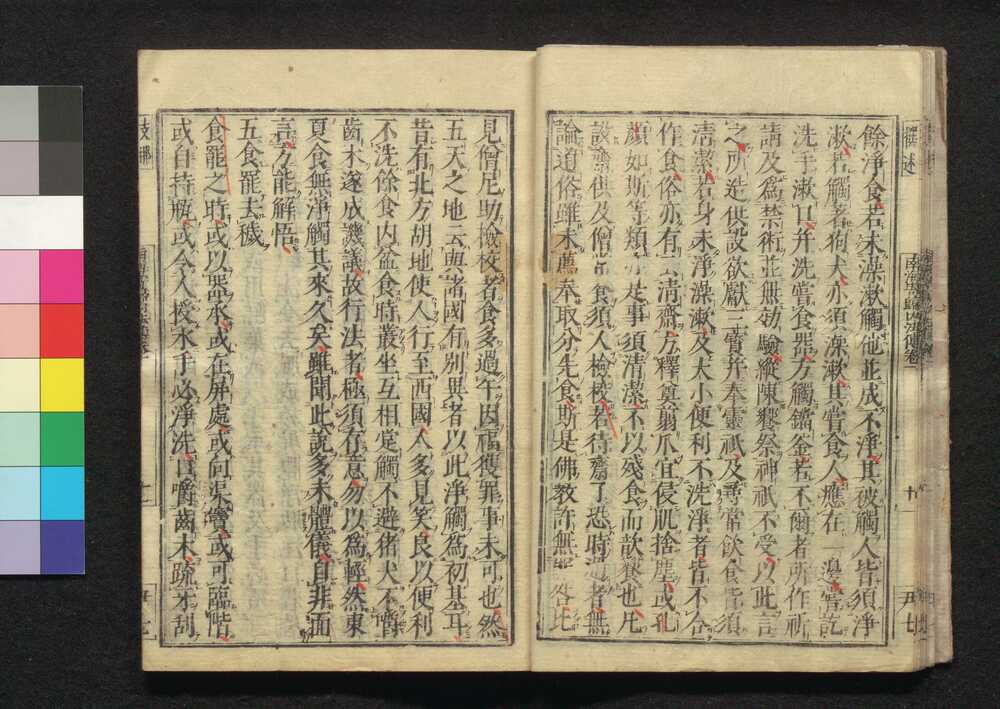 餘淨食若未澡漱觸他並成不淨其被觸人皆須淨
漱若觸著狗犬亦須澡漱其嘗食人應在一邊嘗訖
洗手漱口并洗嘗食器方觸鐺釜若不爾者所作祈
請及爲禁術並無効驗縱陳饗祭神祇不受以此言
之所造供設欲獻三寶并奉靈祇及尋常飲食皆須
清潔若身未淨澡漱及大小便利不洗淨者皆不合
作食俗亦有云清齋方釋奠翦爪宜侵肌捨塵或孔
顏如斯等類亦是事須清潔不以殘食而歆饗也凡
設齋供及僧常食須人檢校若待齋了恐時過者無
論道俗雖未薦奉取分先食斯是佛教許無罪咎比
見僧尼助檢校者食多過午因福獲罪事未可也然
五天之地云與諸國有別異者以此淨觸爲初基耳
昔有北方胡地使人行至西國人多見笑良以便利
不洗餘食内盆食時叢坐互相掌觸不避猪犬不嚼
齒木遂成譏議故行法者極須存意勿以為輕然東
夏食無淨觸其來久矣雖聞此說多未體儀自非面
言方能解悟
五食罷去穢
食罷之時或以器承或在屏處或向渠竇或可臨階
或自持瓶或令人授水手必淨洗口嚼齒木疏牙刮